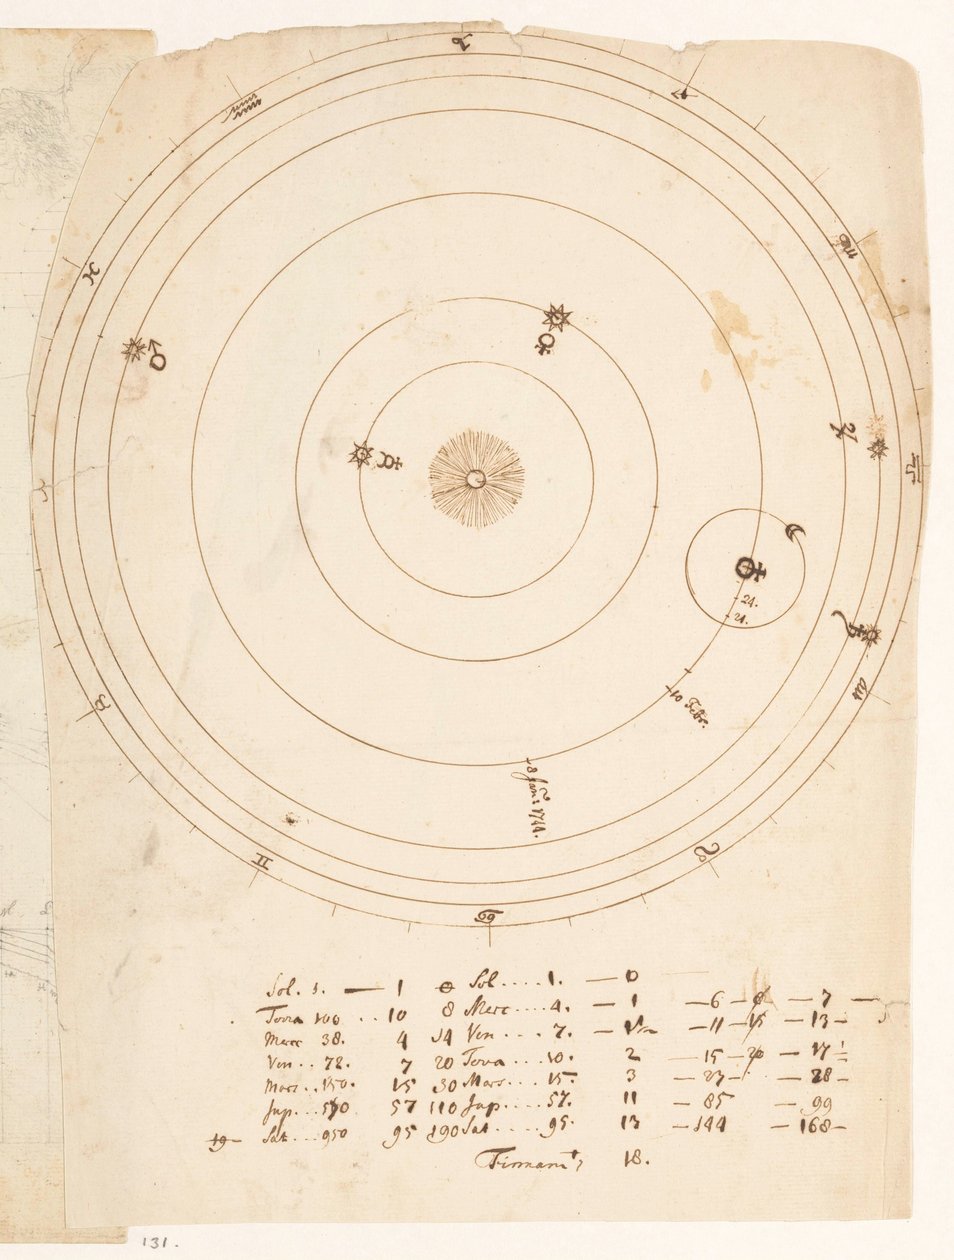 ♑
♐
♒
♏
♓
♀
♂
♃
♎
☿
♈
☾
♁
24.
21.
♄
♍
♉
10 Febr.
8 Jan: 1744.
♌
♊
♋
Sol. 1. — 1 0 Sol .... 1. — 0
Terra 100 .. 10 8 Merc .... 4. — 1 — 6 — 8 — 7 —
Merc 38. 4 14 Ven ... 7. — — 11 — 15 — 13 —
Ven .. 72. 7 20 Terra ... 10. 2 — 15 — 20 — 17 ½
Mars .. 150. 15 30 Mars ... 15. 3 — 27 — — 28 —
Jup. .. 570 57 110 Jup. .... 57. 11 — 85 — 99
19 — Sat ... 950 95 190 Sat .... 95. 13 — 144 — 168 —
Firmamt; 18.
131.